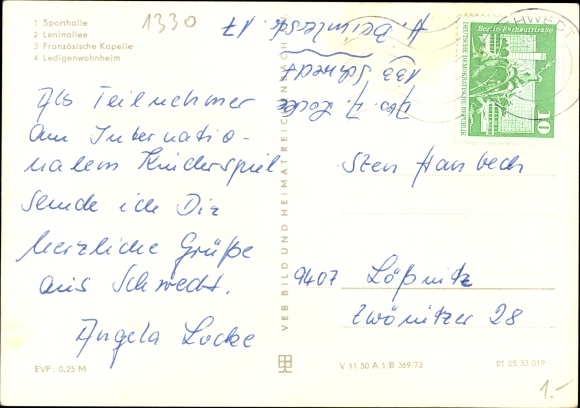 1 Sporthalle
2 Leninallee
3 Französische Kapelle
4 Ledigenwohnheim
1330
Als Teilnehmer
am Internatio-
nalem Kinderspiel
sende ich Dir
herzliche Grüße
aus Schwedt.
Angela Locke
EVP: 0,25 M
VEB BILD UND HEIMAT REICHENBACH
Abs. A. Locke
133 Schwedt
17
SCHWEDT
Berlin Rathausstraße
DEUTSCHE DEMOKRATISCHE REPUBLIK
10
Sten Hanbech
9407 Lößnitz
Zwönitzer 28
V 11 50 A 1/B 369/73
01 05 33 019
1.-